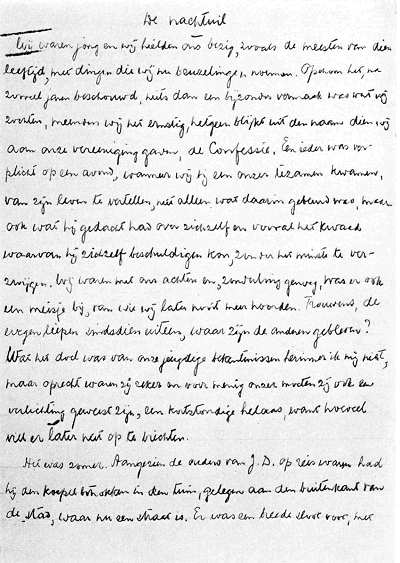 De nachtuil
Wij waren jong en wij hielden ons bezig, zooals de meesten van dien
leeftijd, met dingen die wij nu beuzelingen noemen. Ofschoon het, na
zooveel jaren beschouwd, niets dan een bijzonder vermaak was wat wij
zochten, meenden wij het ernstig, hetgeen blijkt uit den naam dien wij
aan onze vereeniging gaven, de Confessie. Een ieder was ver-
plicht op een avond, wanneer wij bij een onzer tezamen kwamen,
van zijn leven te vertellen, niet alleen wat daarin gebeurd was, maar
ook wat hij gedacht had over zichzelf en vooral het kwaad
waarvan hij zichzelf beschuldigen kon, zonder het minste te ver-
zwijgen. Wij waren met ons achten en, zonderling genoeg, was er ook
een meisje bij, van wie wij later nooit meer hoorden. Trouwens, de
wegen liepen sindsdien uiteen, waar zijn de anderen gebleven?
Wat het doel was van onze jeugdige bekentenissen herinner ik mij niet,
maar oprecht waren zij zeker en voor menig onzer moeten zij ook een
verlichting geweest zijn, een kortstondige helaas, want hoeveel
viel er later niet op te biechten.
Het was zomer. Aangezien de ouders van J. D. op reis waren had
hij den koepel betrokken in den tuin, gelegen aan den buitenkant van
de stad, waar nu een straat is. Er was een breede sloot voor, met